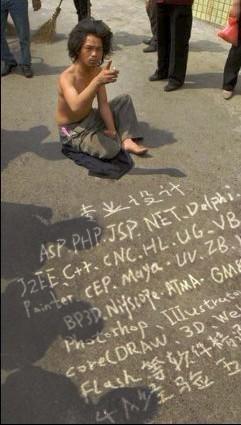 专业设计
ASP.PHP.JSP.NET.Delphi
J2EE.C++.CNC.HL.UG-VB
Painter.CEP.Maya UV.ZB.
BP3D.Nifslope.ATMA.GMB
Photoshop、Illustrato
corelDRAW、3D.We
Flash 等软件精
4